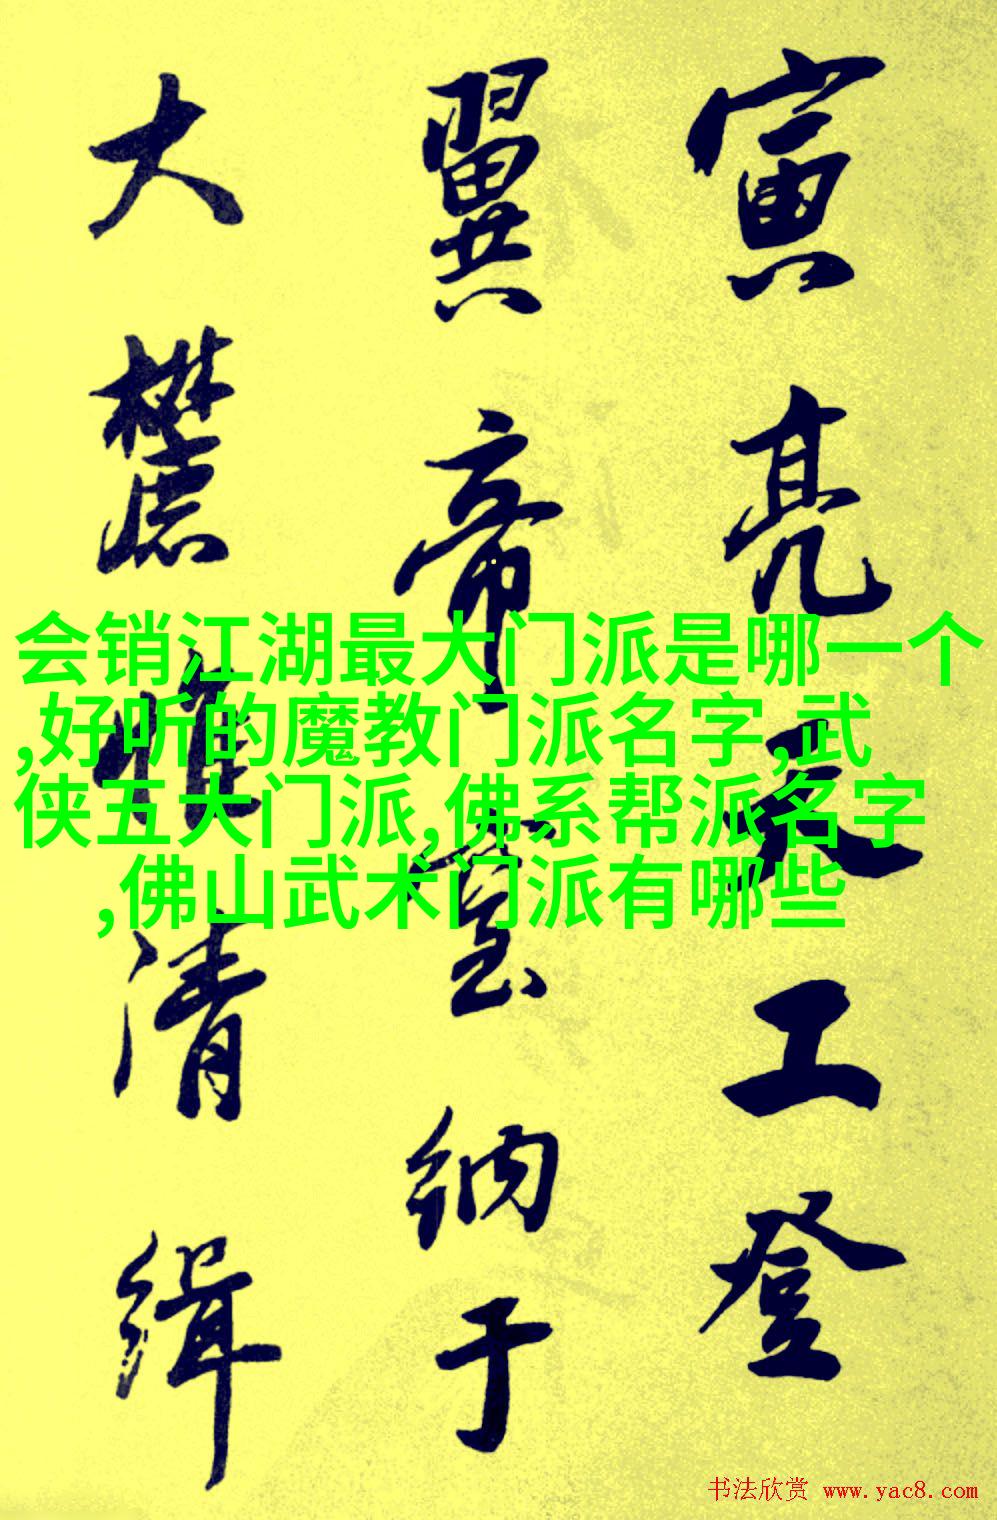 寅亮天工登
翼帝室纳于
大麓惟清缉
会销江湖最大门派是哪一个
,好听的魔教门派名字,武
侠五大门派,佛系帮派名字
,佛山武术门派有哪些
书法欣赏 www.yac8.com